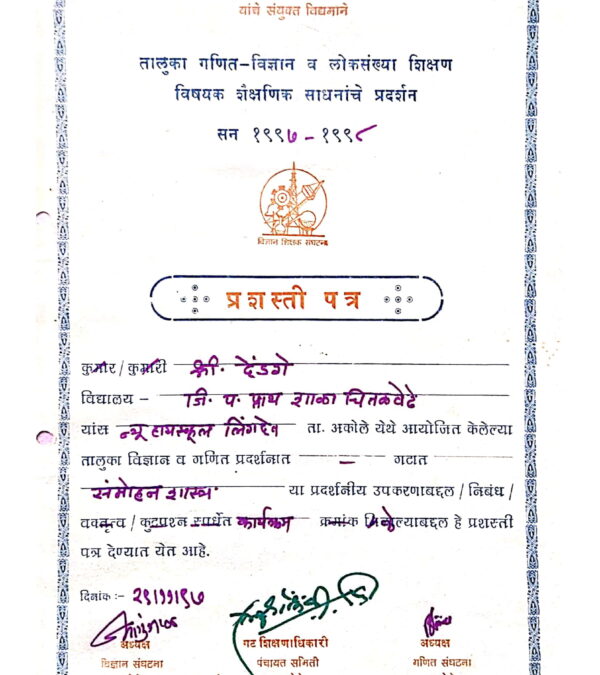 यांचे संयुक्त विद्यमाने
तालुका गणित-विज्ञान व लोकसंख्या शिक्षण
विषयक शैक्षणिक साधनांचे प्रदर्शन
सन १९९७ - १९९८
विज्ञान शिक्षक संघटना
प्रशस्ती पत्र
कुमार / कुमारी श्री. देंडगे
विद्यालय - जि. प. प्राथ शाळा चितळवेढे
यांस न्यू हायस्कूल लिंगदेव ता. अकोले येथे आयोजित केलेल्या
तालुका विज्ञान व गणित प्रदर्शनात - गटात
संमोहन शास्त्र या प्रदर्शनीय उपकरणाबद्दल / निबंध /
वक्तृत्व / कुटप्रश्न स्पर्धेत कार्यक्रम क्रमांक केल्याबद्दल हे प्रशस्ती
पत्र देण्यात येत आहे.
दिनांक :- २९।११।९७
अध्यक्ष गट शिक्षणाधिकारी अध्यक्ष
विज्ञान संघटना पंचायत समिती गणित संघटना